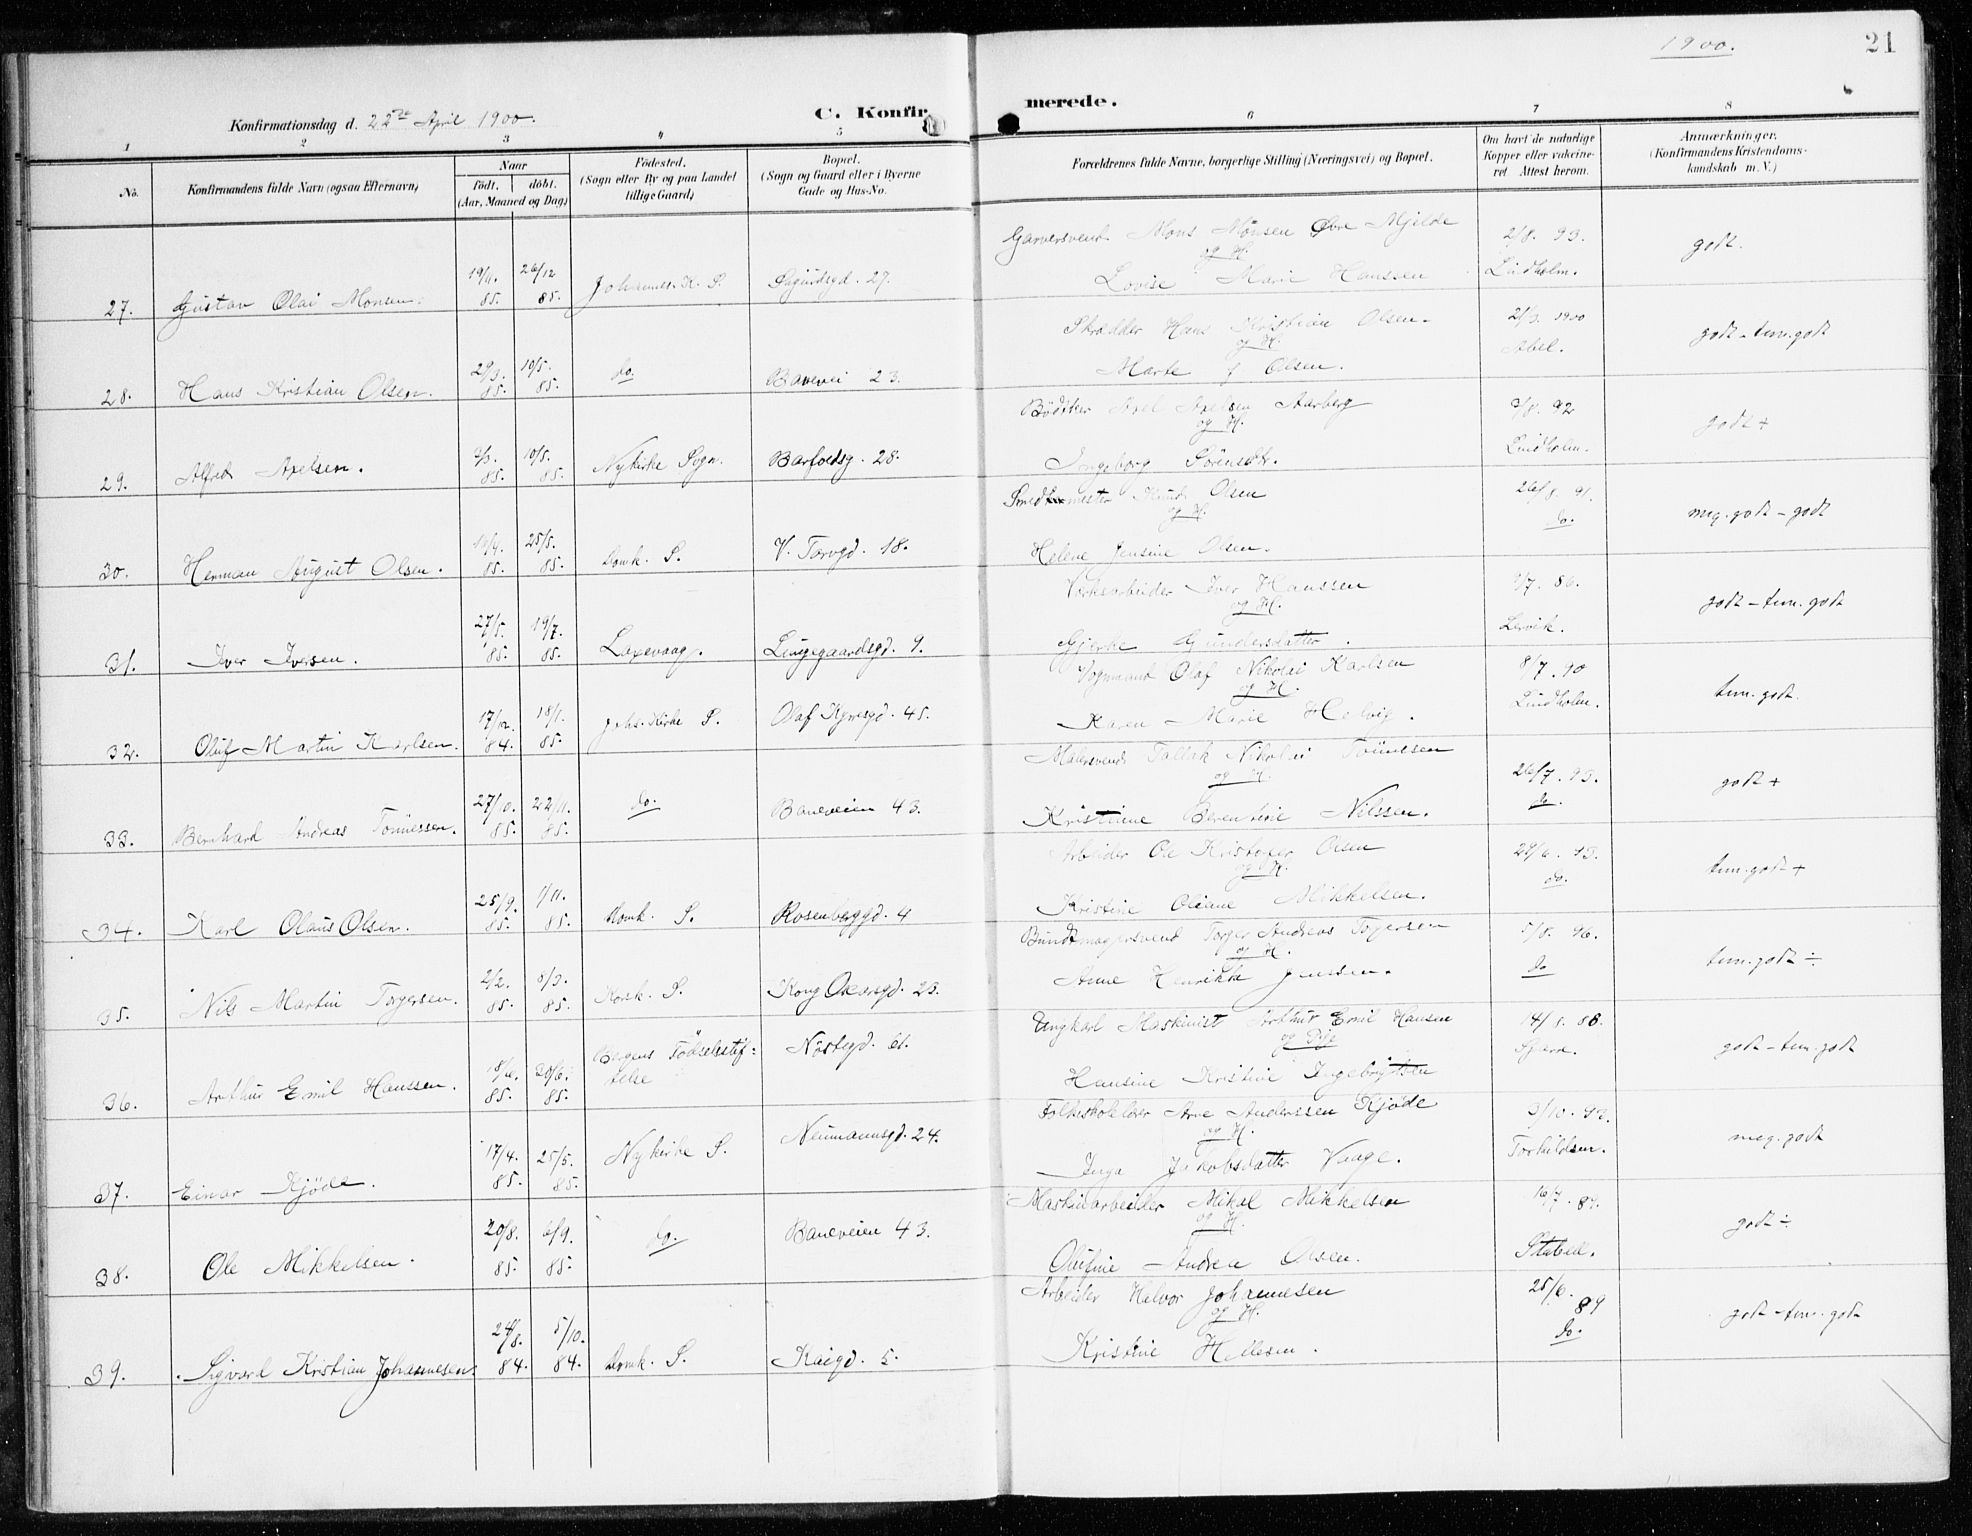 1900.
21
Konfirmationsdag d. 22de April 1900.
C. Konfirmerede.
1 2 3 4 5 6 7 8
No.
Konfirmandens fulde Navn (ogsaa Efternavn)
Naar
født. døbt.
(Aar, Maaned og Dag)
Fødested.
(Sogn eller By og paa Landet
tillige Gaard)
Bopæl.
(Sogn og Gaard eller i Byerne
Gade og Hus-No.
Forældrenes fulde Navne, borgerlige Stilling (Næringsvei) og Bopæl.
Om havt de naturlige
Kopper eller vakcine-
ret Attest herom.
Anmærkninger.
(Konfirmandens Kristendoms-
kundskab m. V.)
Garversvend Mons Monsen Øvre-Mjelde 2/8. 93. godt.
og H.
19/11. 26/12 Johannes K. S. Sigurdsgd. 27. Lovise Marie Hanssen Lindholm.
27. Gustav Olai Monsen. 85. 85.
Skrædder Hans Kristian Olsen. 21/3. 1900 godt - tem. godt
og H.
29/3. 10/5. do. Banevei 23. Marte Olsen. Abel.
28. Hans Kristian Olsen. 85. 85.
Bödiker Axel Axelsen Aarberg 3/8. 92 godt +
og H.
10/5. Nykirke Sogn. Barfoedsg. 28. Ingeborg Sörensdtr. Lindholm.
29. Alfred Axelsen. 85. 85.
Smedmester Knud Olsen 26/8. 91. meg. godt - godt
og H. do.
25/5. Domk. S. V. Torvgd. 18. Helene Jensine Olsen.
30. Herman August Olsen. 85. 85.
Værksarbeider Iver Hanssen 86. godt - tem. godt
og H.
27/5. 19/7. Laxevaag. Lungegaardsgd. 9. Gjerke Gundersdatter. Lervik.
31. Iver Iversen. 85. 85.
Vognmand Olaf Nikolai Karlsen 8/7. 90 tem. godt.
og H.
17/12. 18/1. Johs. Kirke S. Olaf Kyrresgd. 45. Karen Marie Helvig. Lindholm.
32. Oluf Martin Karlsen. 84. 85.
Malersvend Tallak Nikolai Tönnessen 26/7. 95. godt +
og H. do.
27/10. 22/11. do. Baneveien 43. Kristine Berentine Nilssen.
33. Bernhard Andreas Tönnessen. 85. 85.
Arbeider Ole Kristofer Olsen 24/6. 95. tem. godt +
og H. do.
25/9. 1/11. Domk. S. Rosenberggd. 4 Kristine Oliane Mikkelsen.
34. Karl Olaus Olsen. 85. 85.
Bundtmagersvend Torger Andreas Torgersen 5/8. 96. tem. godt ÷
og H. do
2/2. 8/3. Korsk. S. Kong Oscarsgd. 23. Anne Henrikke Jenssen.
35. Nils Martin Torgersen. 85. 85.
Ungkarl Maskinist Arthur Emil Hansen 14/8. 86. godt - tem. godt
og Pige
18/6. 20/6. Bergens Födselsstif= Nöstegd. 61. Hansine Kristine Ingebrigtsen
telse
36. Arthur Emil Hanssen. 85. 85.
Folkeskolelærer Arne Anderssen Kjöde 3/10. 92. meg. godt
og H.
17/4. 25/5. Nykirke S. Neumannsgd. 24. Inga Jakobsdatter Vaage. Torkildsen.
37. Einar Kjöde. 85. 85.
Maskinarbeider Mikal Mikkelsen 16/7. 89. godt ÷
og H.
20/8. 6/9. do. Baneveien 43. Olufine Andrea Olsen. Stabell.
38. Ole Mikkelsen. 85. 85.
Arbeider Halvor Johannesen 25/6. 89 godt - tem. godt
og H. do.
24/8. 5/10. Domk. S. Kaigd. 5. Kristine Hellesen.
39. Sigvard Kristian Johannesen. 84. 84.